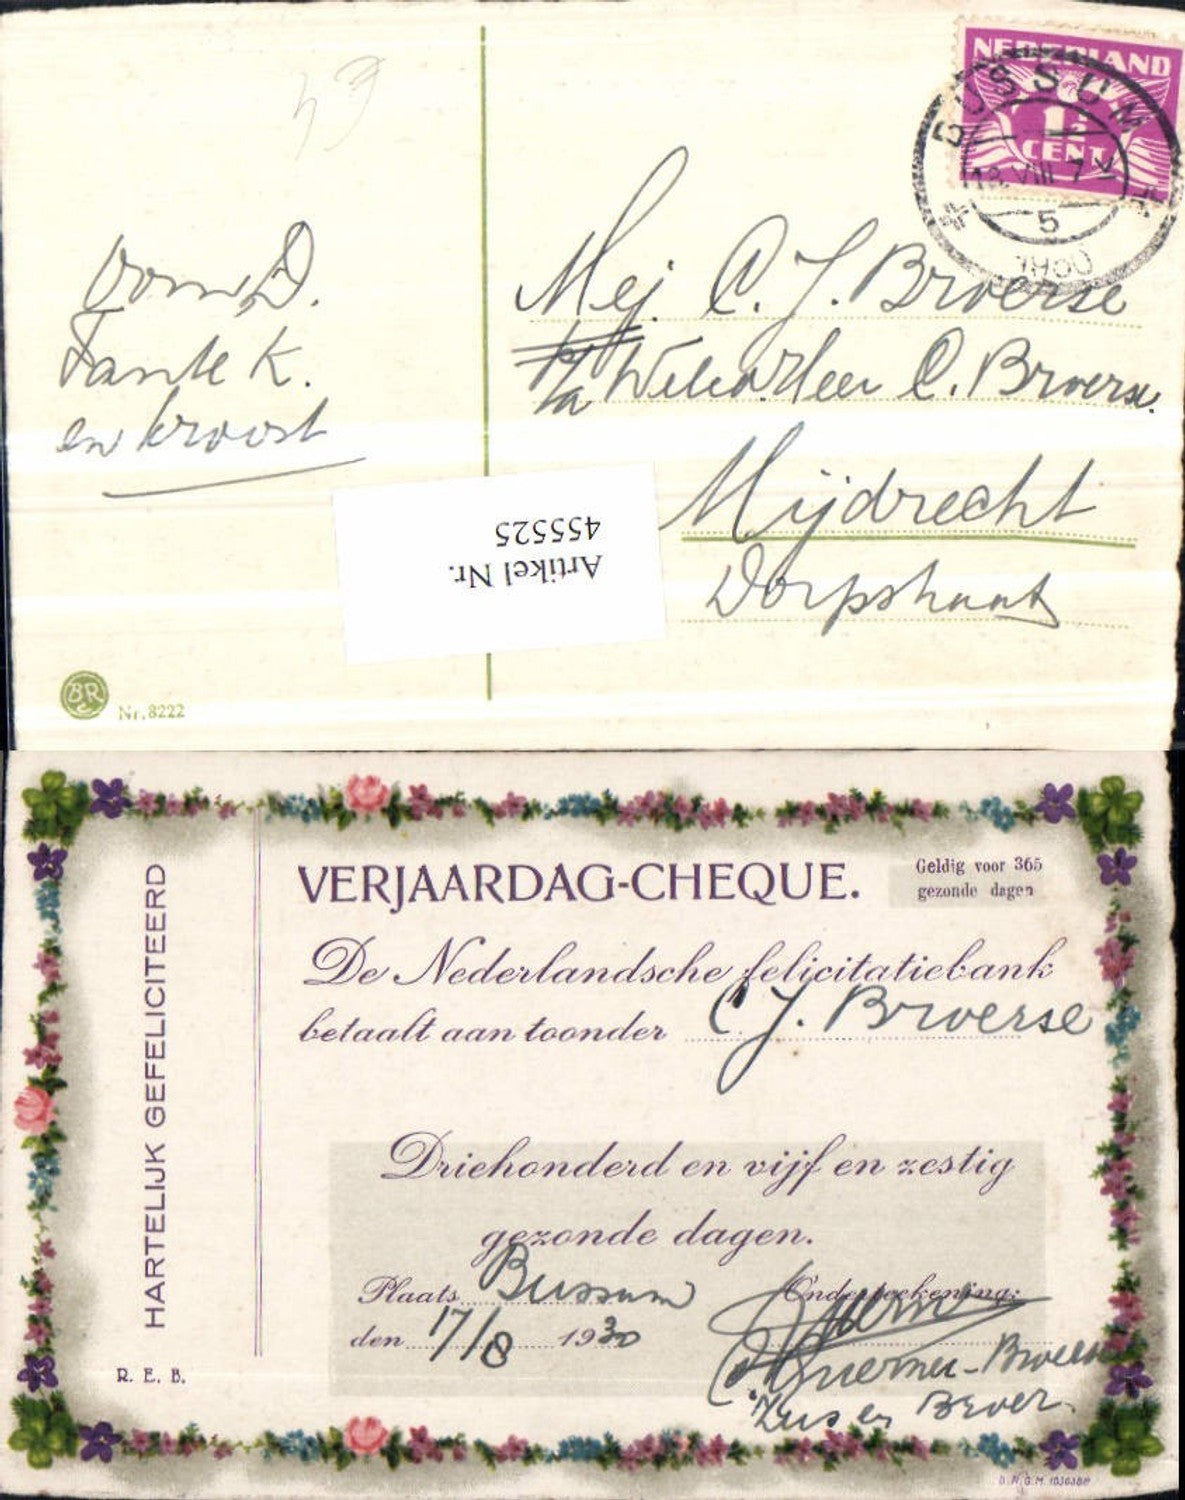 NEDERLAND
1½
CENT
BUSSUM
18.VIII 7
5
1930
Oom D.
Tante K.
en kroost
Mej. C. J. Broerse
p/a WelEd. Heer C. Broerse.
Mijdrecht
Dorpstraat
Artikel Nr.
455525
BR
Nr. 8222
HARTELIJK GEFELICITEERD
R. E. B.
VERJAARDAG-CHEQUE.
Geldig voor 365
gezonde dagen
De Nederlandsche felicitatiebank
betaalt aan toonder C J. Broerse
Driehonderd en vijf en zestig
gezonde dagen.
Plaats Bussum
Onderteekening:
den 17/8 1930
Zus en Broer.
D.R.G.M.